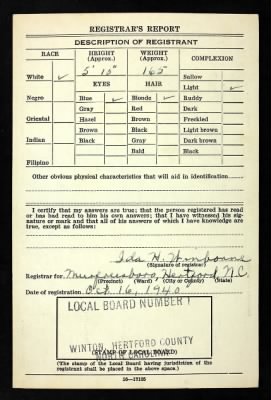 REGISTRAR'S REPORT
DESCRIPTION OF REGISTRANT
RACE HEIGHT (Approx.) WEIGHT (Approx.) COMPLEXION
5' 10" 165 Sallow
White ✓ EYES HAIR Light ✓
Negro Blue ✓ Blonde ✓ Ruddy
Gray Red Dark
Oriental Hazel Brown Freckled
Brown Black Light brown
Indian Black Gray Dark brown
Bald Black
Filipino
Other obvious physical characteristics that will aid in identification
I certify that my answers are true; that the person registered has read
or has had read to him his own answers; that I have witnessed his sig-
nature or mark and that all of his answers of which I have knowledge are
true, except as follows:
Ida H.
(Signature of registrar)
Registrar for Murfreesboro Hertford N.C.
(Precinct) (Ward) (City or County) (State)
Date of registration Oct 16, 1940
LOCAL BOARD NUMBER 1
WINTON, HERTFORD COUNTY
NORTH CAROLINA
(STAMP OF LOCAL BOARD)
(The stamp of the Local Board having jurisdiction of the
registrant shall be placed in the above space.)
16—17105